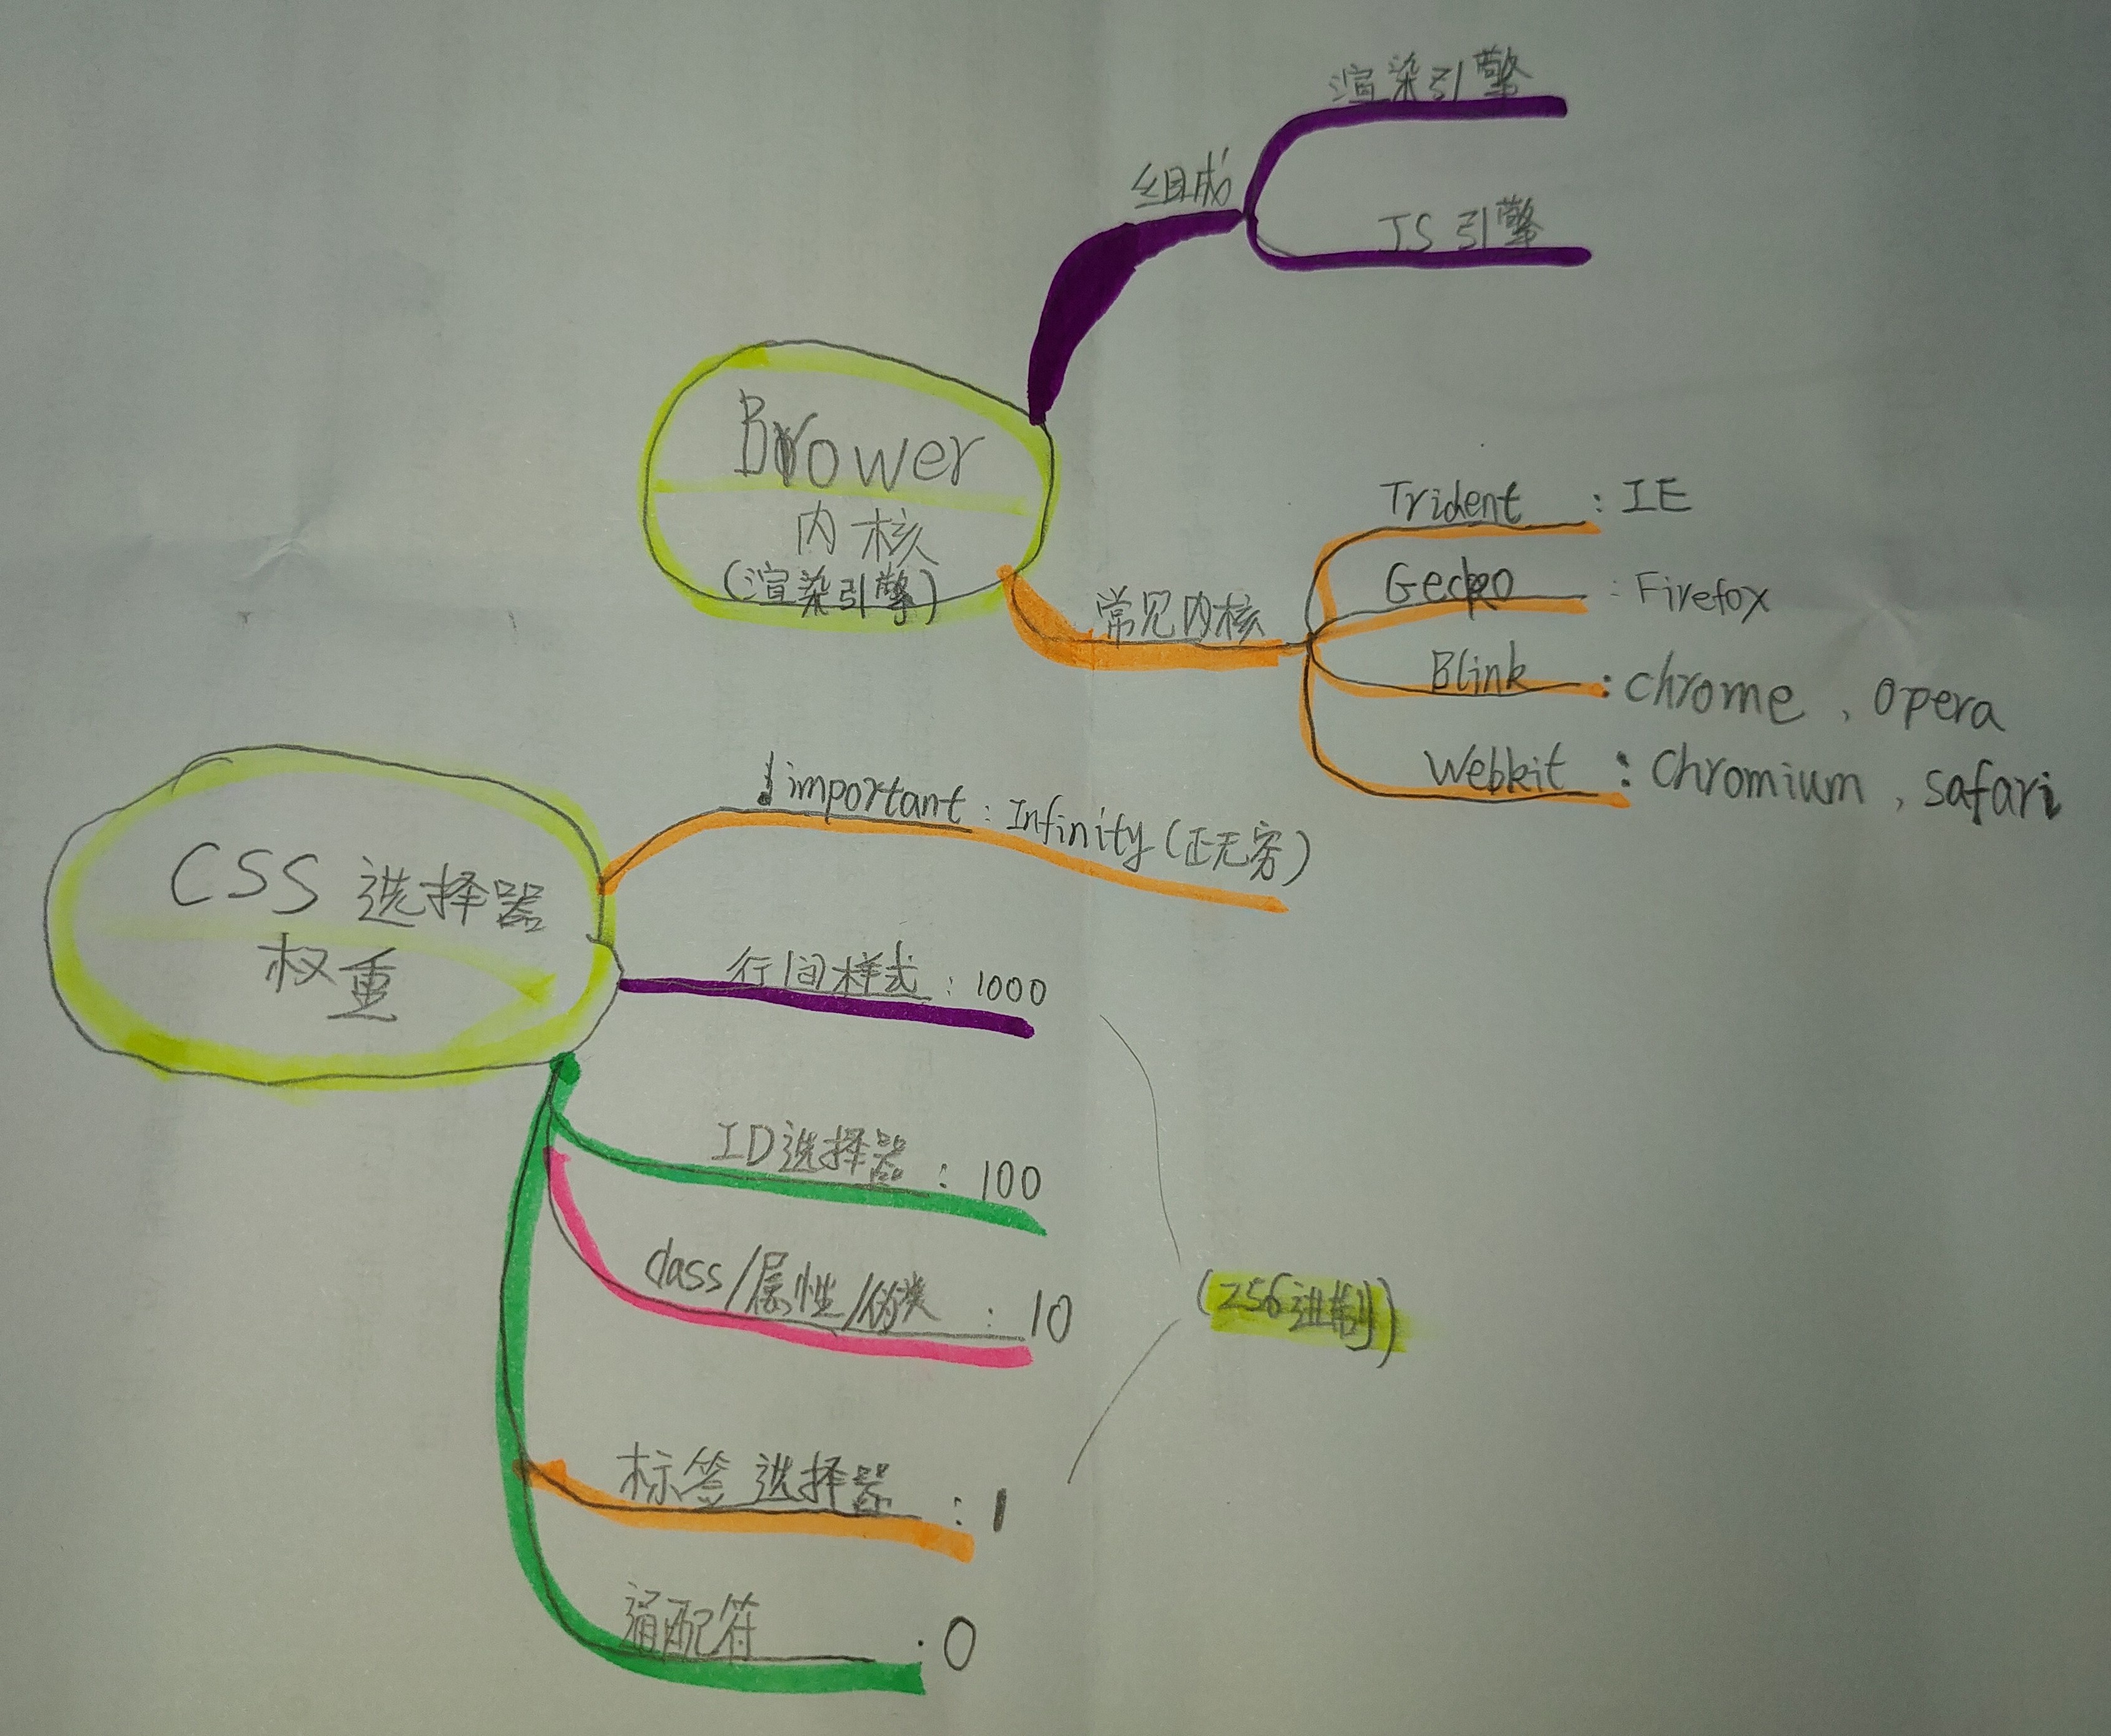 渲染引擎
组成
JS引擎
Brower
内核
(渲染引擎)
常见内核
Trident : IE
Gecko : Firefox
Blink : chrome、opera
Webkit : chromium、safari
CSS 选择器
权重
!important : Infinity (正无穷)
行间样式 : 1000
ID选择器 : 100
class/属性/伪类 : 10
(256进制)
标签选择器 : 1
通配符 : 0